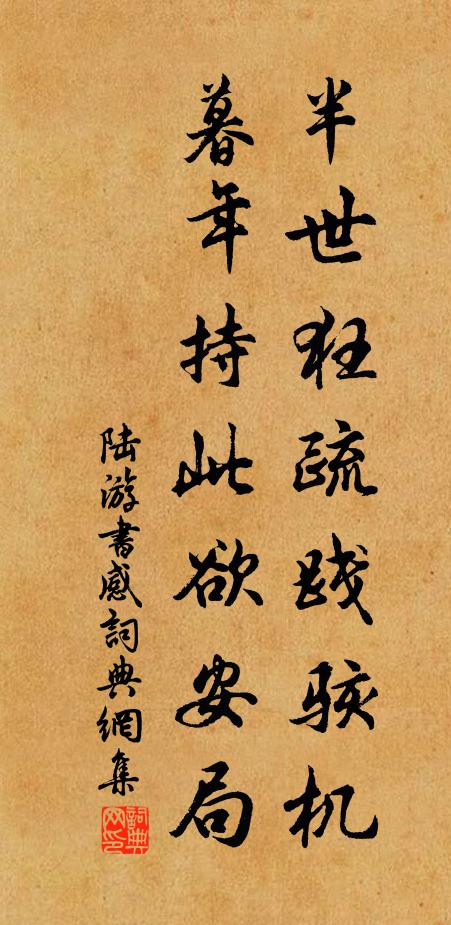 半世狂疏践骇机
暮年持此欲安局
陆游書感詞典網集
詞典网印